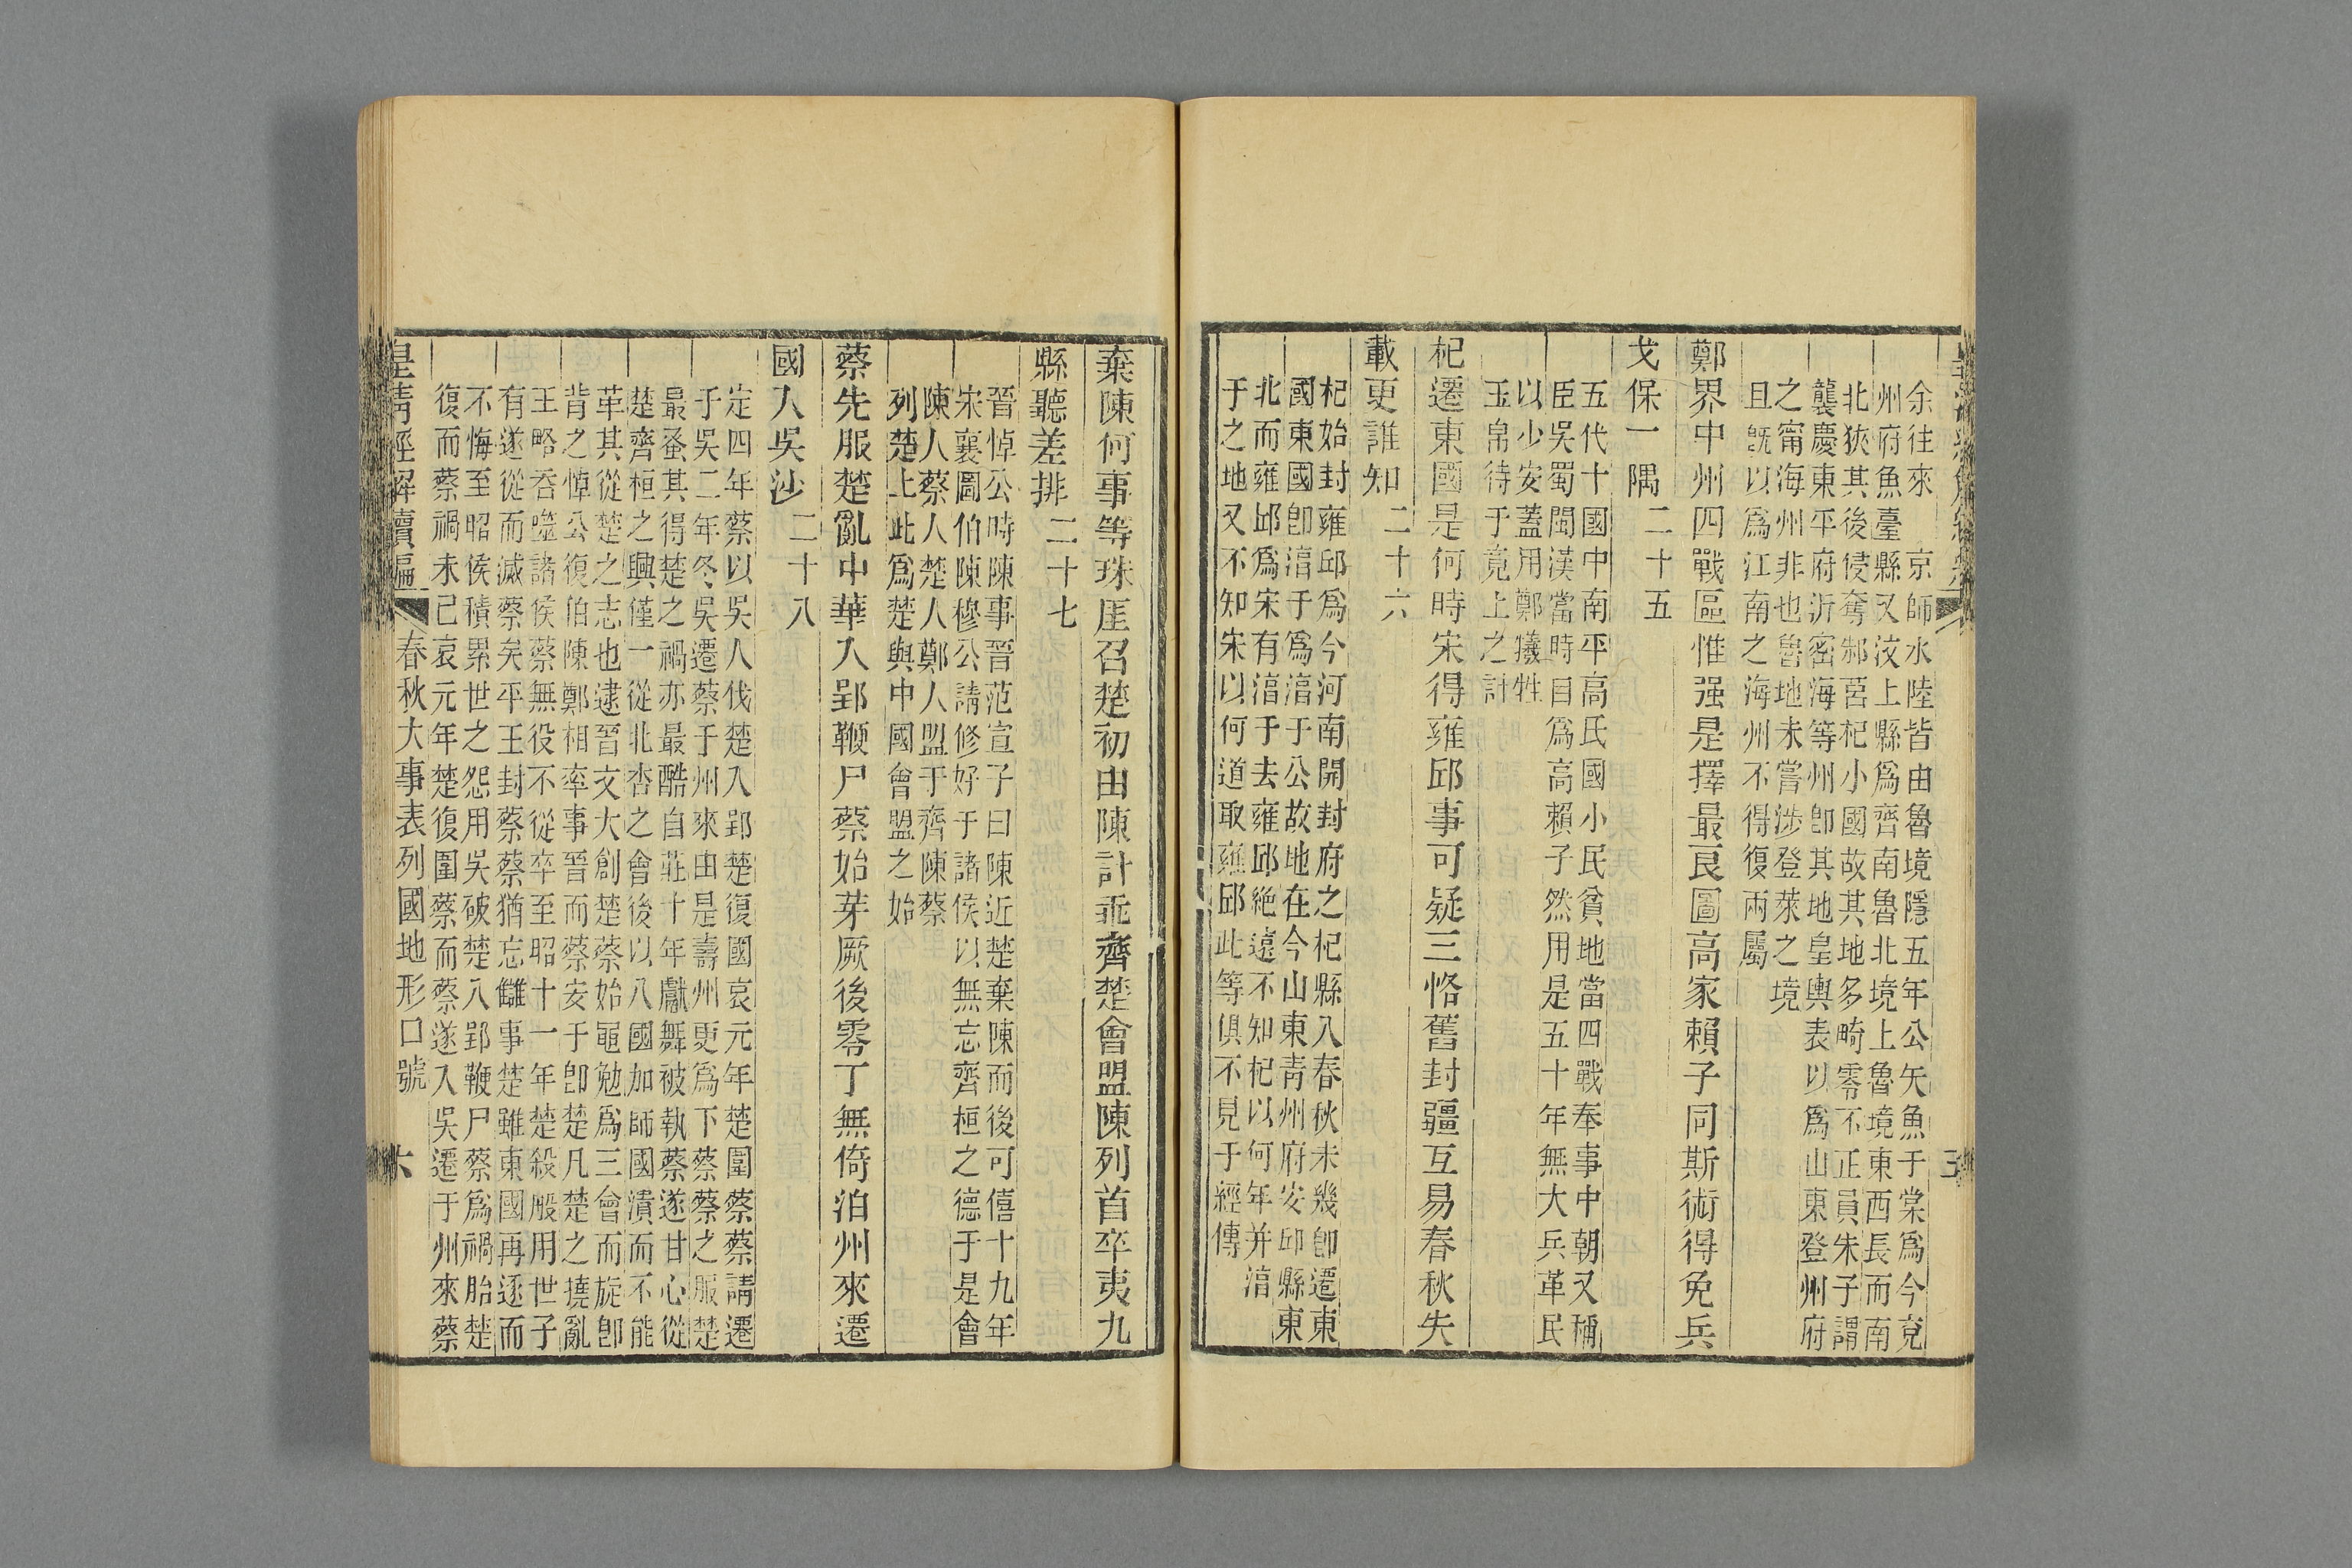 余往來　京師水陸皆由魯境隱五年公矢魚于棠爲今兗
州府魚臺縣又汶上縣爲齊南魯北境上魯境東西長而南
北狹其後侵奪邾莒杞小國故其地多畸零不正員朱子謂
襲慶東平府沂密海等州卽其地皇輿表以爲山東登州府
之甯海州非也魯地未嘗涉登萊之境
且旣以爲江南之海州不得復兩屬
鄭界中州四戰區惟强是擇最良圖高家賴子同斯術得免兵
戈保一隅二十五
五代十國中南平高氏國小民貧地當四戰奉事中朝又稱
臣吳蜀閩漢當時目爲高賴子然用是五十年無大兵革民
以少安蓋用鄭犧牲
玉帛待于竟上之計
杞遷東國是何時宋得雍邱事可疑三恪舊封疆互易春秋失
載更誰知二十六
杞始封雍邱爲今河南開封府之杞縣入春秋未幾卽遷東
國東國卽淯于爲淯于公故地在今山東靑州府安邱縣東
北而雍邱爲宋有淯于去雍邱絶遠不知杞以何年并淯
于之地又不知宋以何道取雍邱此等俱不見于經傳
棄陳何事等珠厓召楚初由陳計乖齊楚會盟陳列首卒夷九
縣聽差排二十七
晉悼公時陳事晉范宣子曰陳近楚棄陳而後可僖十九年
宋襄圖伯陳穆公請修好于諸侯以無忘齊桓之德于是會
陳人蔡人楚人鄭人盟于齊陳蔡
列楚上此爲楚與中國會盟之始
蔡先服楚亂中華入郢鞭尸蔡始芽厥後零丁無倚泊州來遷
國入吳沙二十八
定四年蔡以吳人伐楚入郢楚復國哀元年楚圍蔡蔡請遷
于吳二年冬吳遷蔡于州來由是壽州更爲下蔡蔡之服楚
最蚤其得楚之禍亦最酷自莊十年獻舞被執蔡遂甘心從
楚齊桓之興僅一從北杏之會後以八國加師國潰而不能
革其從楚之志也逮晉文大創楚蔡始黽勉爲三會而旋卽
背之悼公復伯陳鄭相率事晉而蔡安于卽楚凡楚之撓亂
王略呑噬諸侯蔡無役不從卒至昭十一年楚殺般用世子
有遂從而滅蔡矣平王封蔡蔡猶忘讎事楚雖東國再逐而
不悔至昭侯積累世之怨用吳破楚入郢鞭尸蔡爲禍胎楚
復而蔡禍未已哀元年楚復圍蔡而蔡遂入吳遷于州來蔡
皇清經解續編　春秋大事表列國地形口號　六